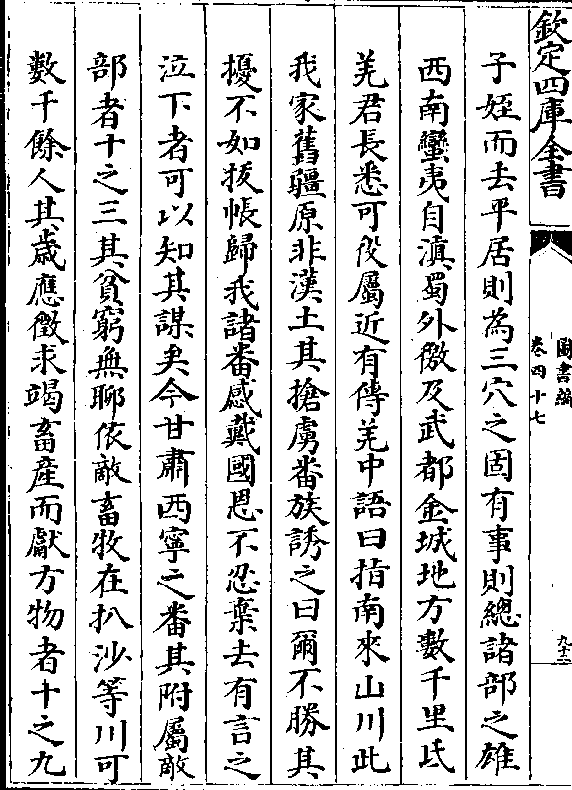 欽定四庫全書
圖書編
卷四十七
子姪而去平居則為三穴之固有事則總諸部之雄
西南蠻夷自滇蜀外徼及武都金城地方數千里氐
羌君長悉可役屬近有傳羌中語曰指南來山川此
我家舊疆原非漢土其搶虜畨族誘之曰爾不勝其
擾不如拔帳歸我諸畨感戴國恩不忍棄去有言之
泣下者可以知其謀矣今甘肅西寧之畨其附屬敵
部者十之三其貧窮無聊依敵畜牧在扒沙等川可
數千餘人其歲應徵求竭畜産而獻方物者十之九